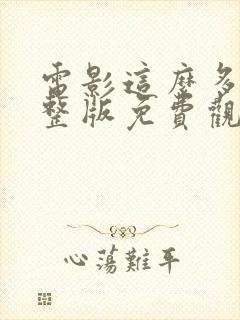 電影這麼多
整版免費觀
心蕩難平